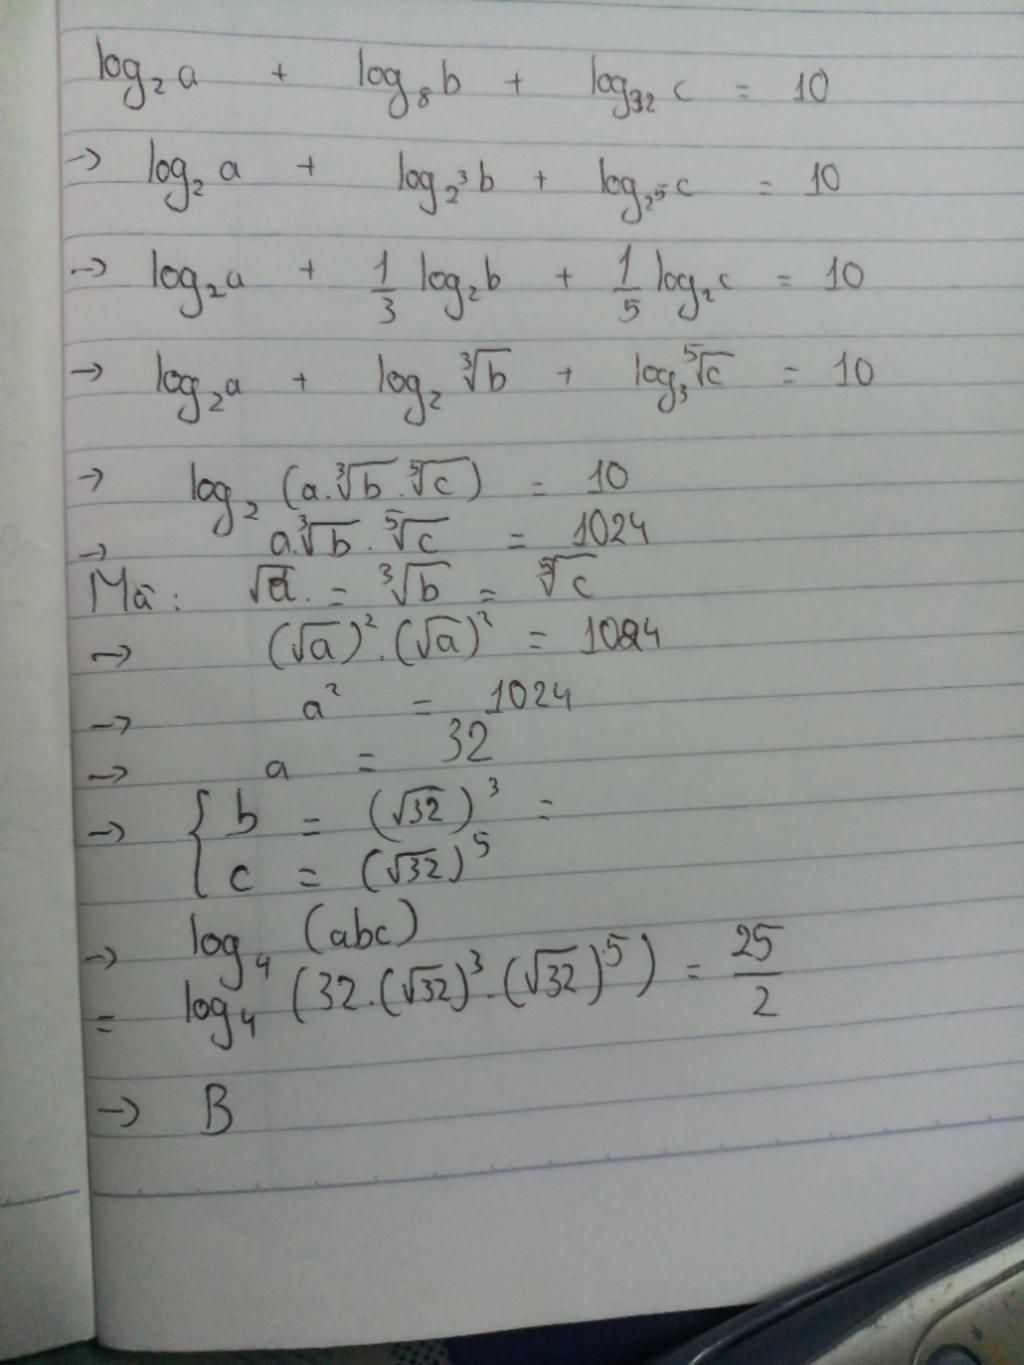 log₂ a + log₈ b + log₃₂ c = 10
→ log₂ a + log₂³ b + log₂⁵ c = 10
→ log₂ a + 1/3 log₂ b + 1/5 log₂ c = 10
→ log₂ a + log₂ ∛b + log₃ ⁵√c = 10
→ log₂ (a.∛b.⁵√c) = 10
→ a.∛b.⁵√c = 1024
Mà: √a = ∛b = ⁵√c
→ (√a)².(√a)² = 1024
→ a² = 1024
→ a = 32
→ { b = (√32)³ =
c = (√32)⁵
→ log₄ (abc)
= log₄ (32.(√32)³.(√32)⁵) = 25/2
→ B